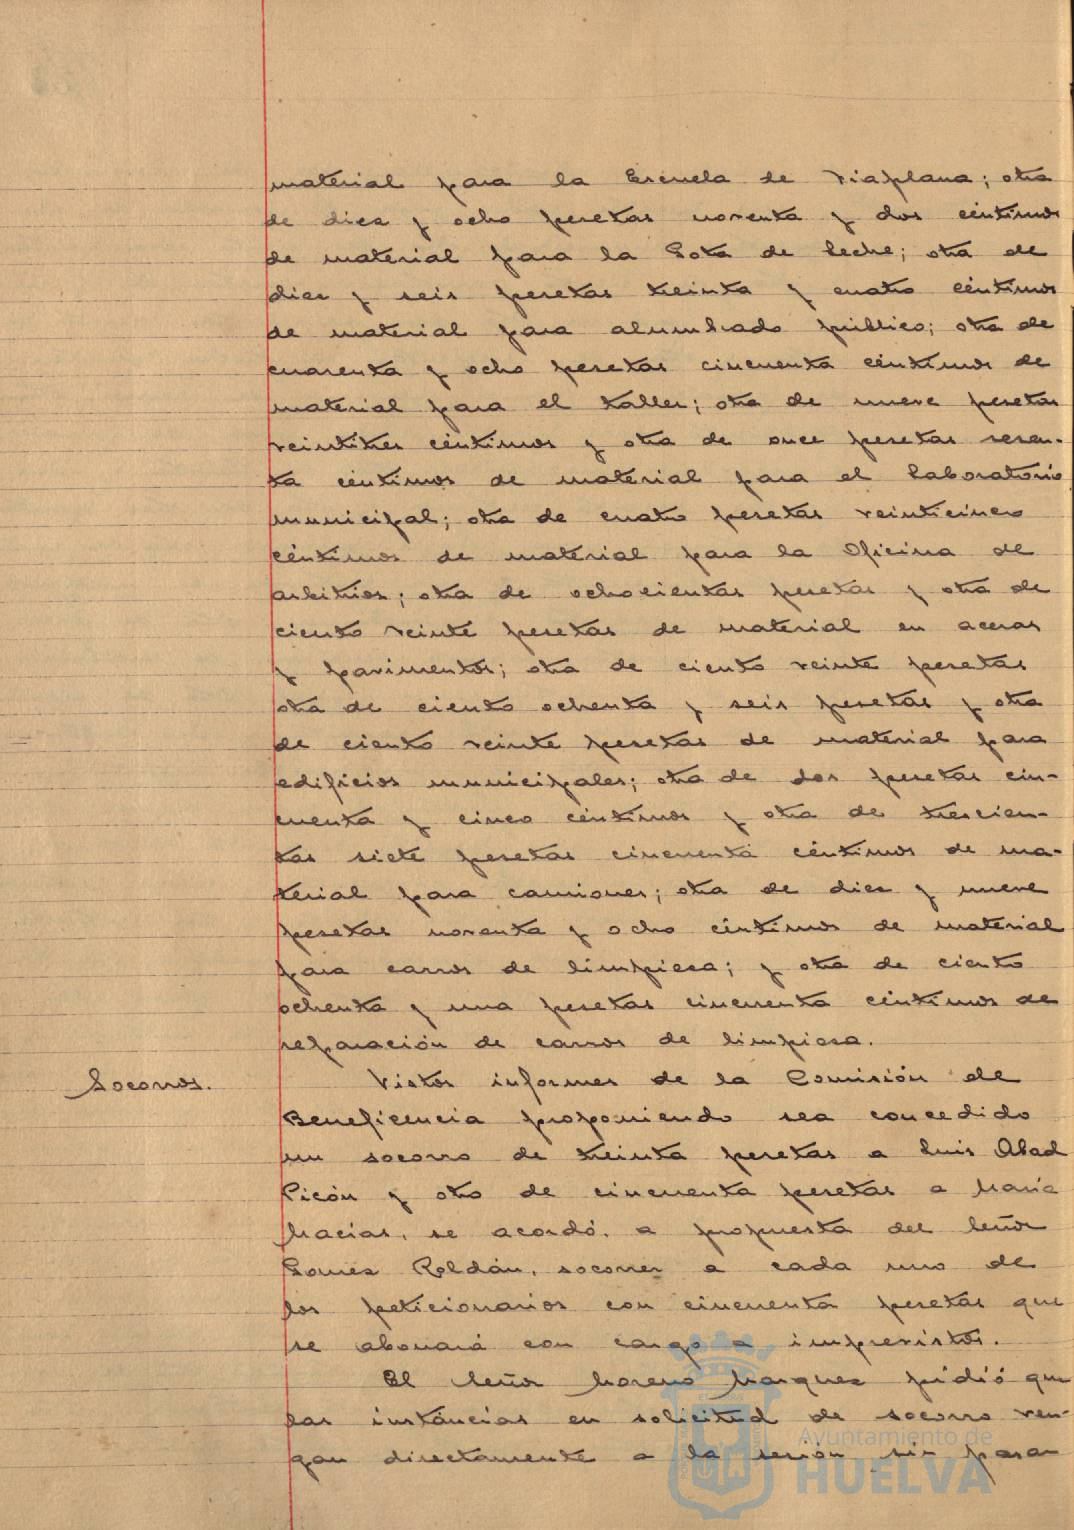 material para la Escuela de Viaplana; otra
de diez y ocho pesetas noventa y dos céntimos
de material para la Gota de Leche; otra de
diez y seis pesetas treinta y cuatro céntimos
de material para alumbrado público; otra de
cuarenta y ocho pesetas cincuenta céntimos de
material para el taller; otra de nueve pesetas
veintitres céntimos y otra de once pesetas sesen-
ta céntimos de material para el Laboratorio
municipal; otra de cuatro pesetas veinticinco
céntimos de material para la Oficina de
arbitrios; otra de ochocientas pesetas y otra de
ciento veinte pesetas de material en aceras
y pavimentos; otra de ciento veinte pesetas
otra de ciento ochenta y seis pesetas y otra
de ciento veinte pesetas de material para
edificios municipales; otra de dos pesetas cin-
cuenta y cinco céntimos y otra de trescien-
tas siete pesetas cincuenta céntimos de ma-
terial para camiones; otra de diez y nueve
pesetas noventa y ocho céntimos de material
para carros de limpieza; y otra de ciento
ochenta y una pesetas cincuenta céntimos de
reparación de carros de limpieza.
Socorros.
Vistos informes de la Comisión de
Beneficencia proponiendo sea concedido
un socorro de treinta pesetas a Luis Abad
Picón y otro de cincuenta pesetas a María
Macías, se acordó, a propuesta del Señor
Gomez Roldán, socorrer a cada uno de
los peticionarios con cincuenta pesetas que
se abonará con cargo a imprevistos.
El Señor Moreno Marquez pidió que
las instáncias en solicitud de socorro ven-
gan directamente a la sesión sin pasar
Ayuntamiento de
HUELVA